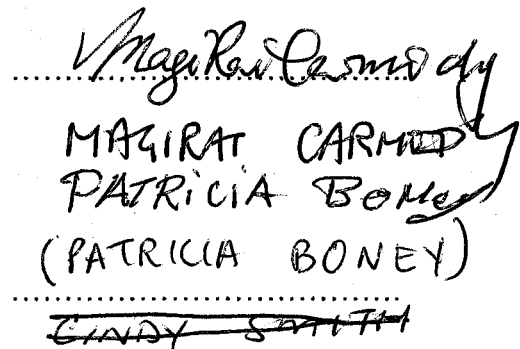 MagiRai Carmody
MAGIRAI CARMODY
PATRICIA BONEY
(PATRICIA BONEY)
CINDY SMITH